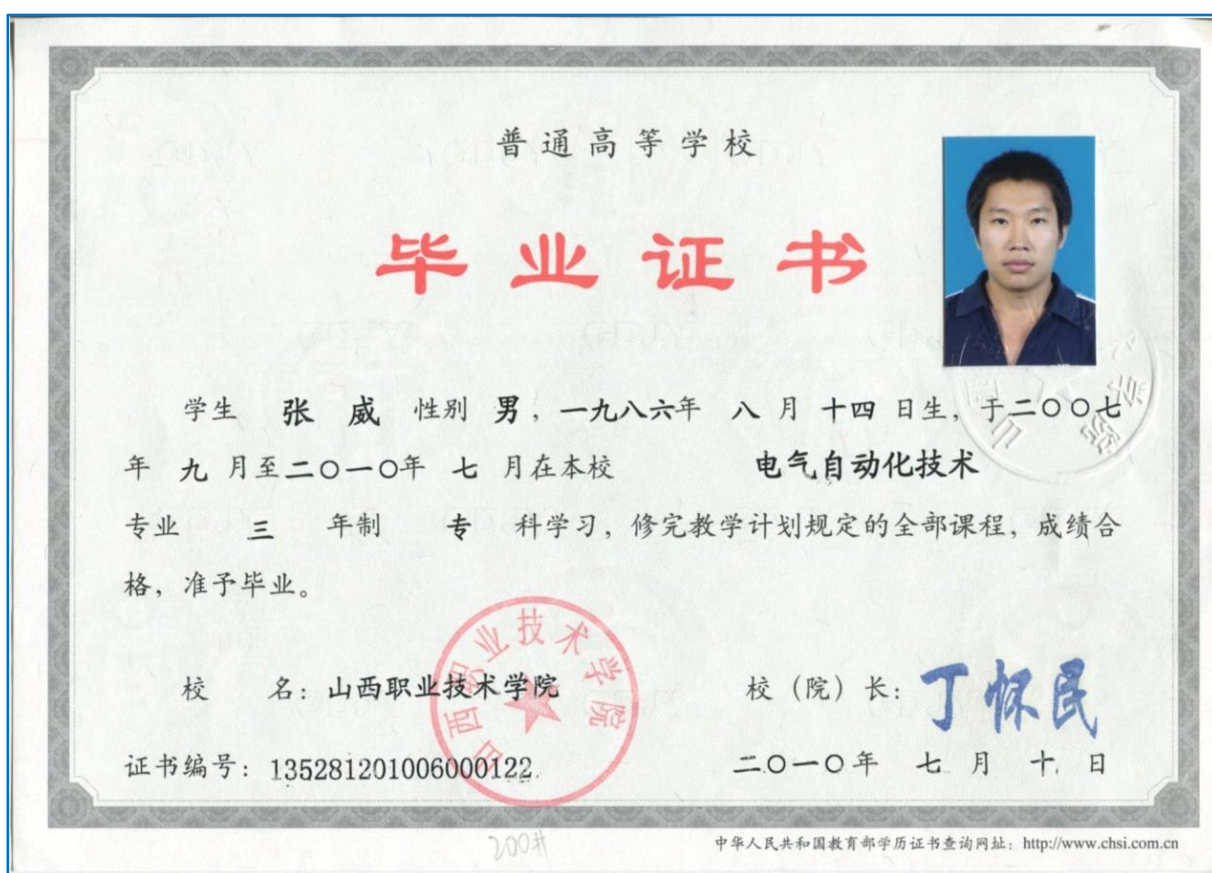 普通高等学校
毕业证书
学生 张 威 性别 男，一九八六年 八 月 十四 日生，于二〇〇七
年 九 月至二〇一〇年 七 月在本校 电气自动化技术
专业 三 年制 专 科学习，修完教学计划规定的全部课程，成绩合
格，准予毕业。
校 名：山西职业技术学院
山西职业技术学院
校（院）长：丁怀民
证书编号：135281201006000122
二〇一〇年 七 月 十 日
中华人民共和国教育部学历证书查询网址：http://www.chsi.com.cn